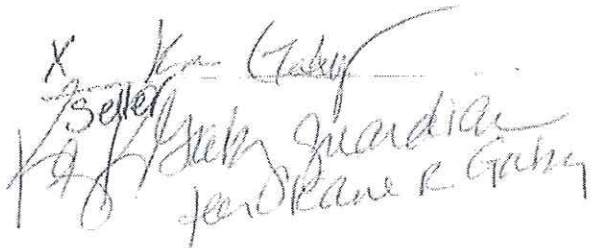 X Ken Gaby
Seller
Gaby guardian
for Duane R Gaby